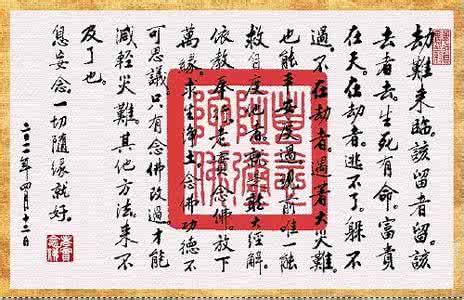 劫難來臨。該留者留。該
去者去。生死有命。富貴
在天。在劫者。逃不了。躲不
過。不在劫者。遇著大災難。
也能平安度過。現前唯一能
救自度他者。就是 大經解。
依教奉行。老實念佛。放下
萬緣。求生淨土。念佛功德不
可思議。只有念佛改過。才能
減輕災難。其他方法。來不
及了也。
息妄念。一切隨緣就好。
二〇一一年四月十二日
老實念佛